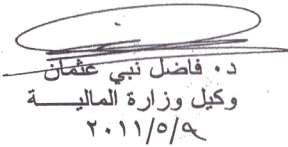 د. فاضل نبي عثمان
وكيل وزارة الماليـــــة
٢٠١١/٥/٩